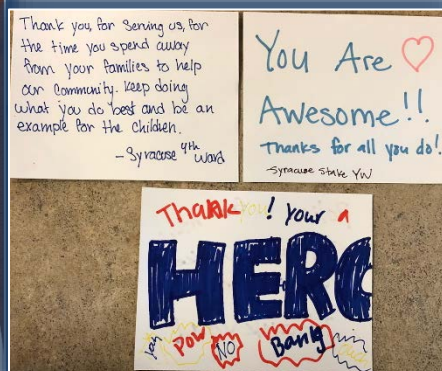 Thank you, for serving us, for
the time you spend away
from your families to help
our community. Keep doing
what you do best and be an
example for the children.
-Syracuse 4th Ward
You Are
Awesome!!
Thanks for all you do!
-Syracuse Stake YW
Thank you! Your a
HERO
POW NO Bang